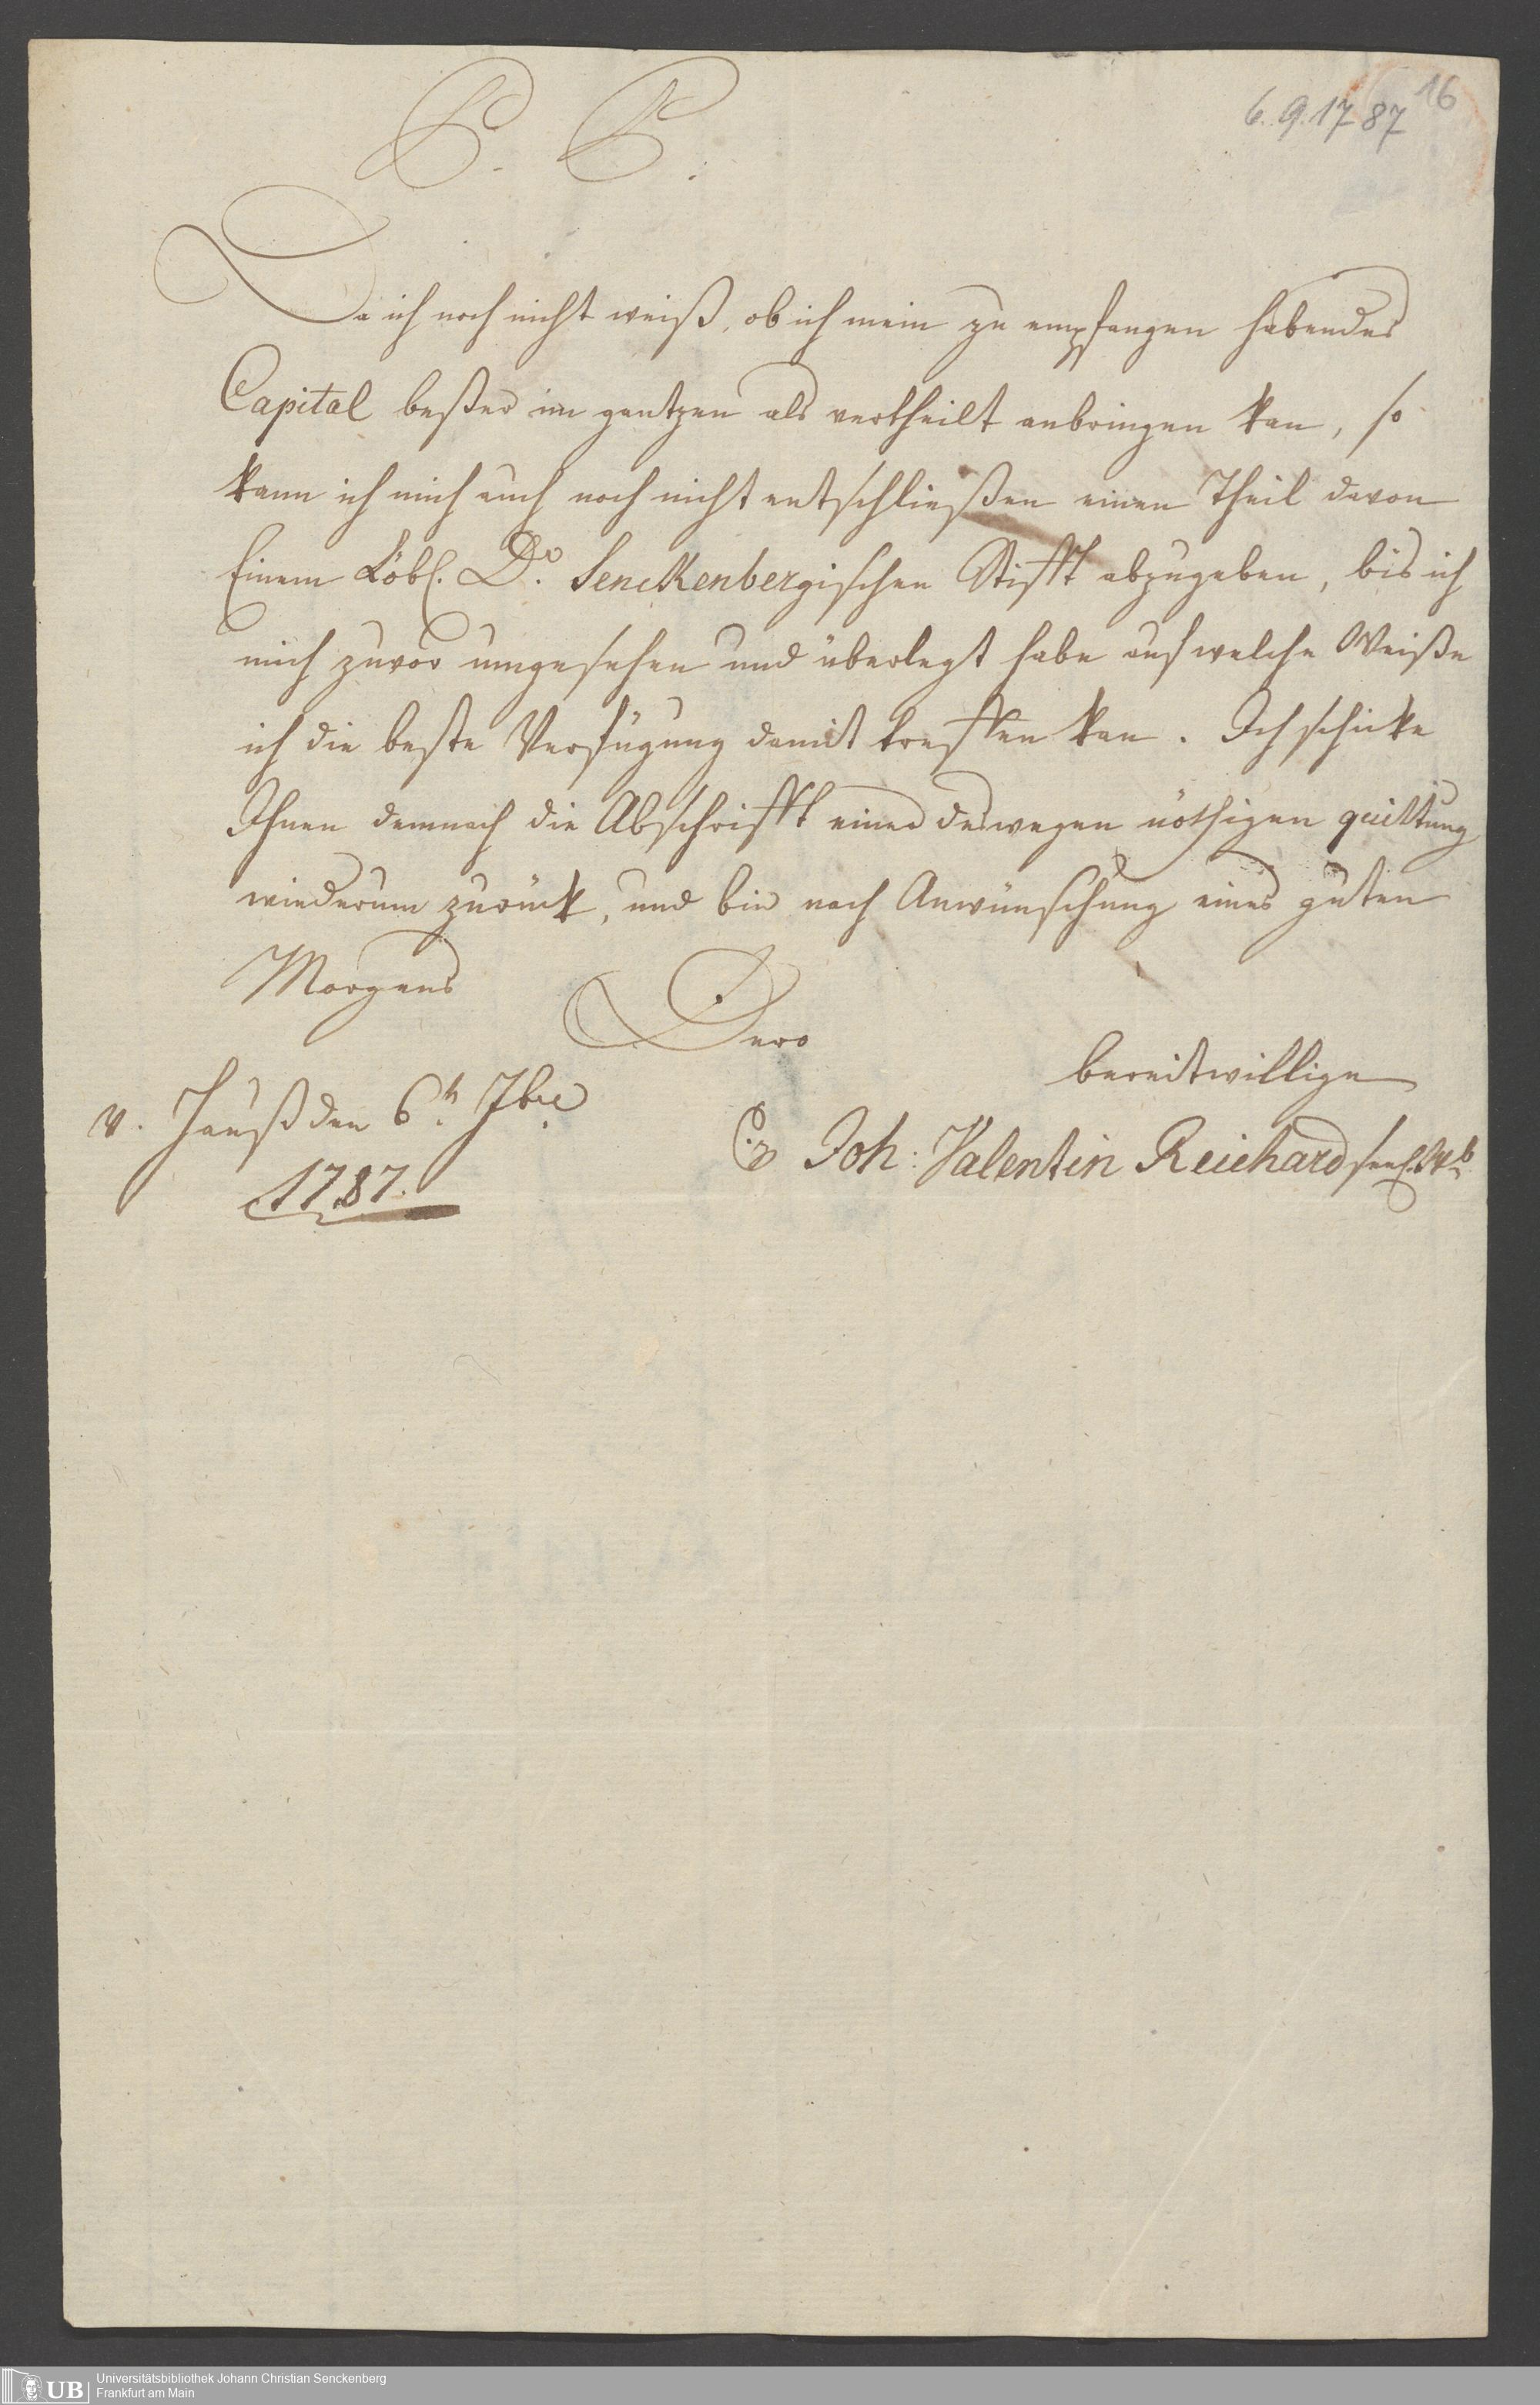 16
6.9.1787
P. P.
Da ich noch nicht weiß, ob ich mein zu empfangen habendes
Capital beßer im gantzen als vertheilt anbringen kan, so
kann ich mich auch noch nicht entschließen einen Theil davon
Einem Löbl. Dr. Senckenbergischen Stifft abzugeben, bis ich
mich zuvor umgesehen und überlegt habe auf welche Weiße
ich die beste Verfügung damit treffen kan. Ich schicke
Ihnen demnach die Abschrifft einer deswegen nöthigen quittung
wiederum zurück, und bin nach Anwünschung eines guten
Morgens
Dero
bereitwillige
v. Hauß den 6t 7bre
Joh: Valentin Reichard seel. Wb
1787.
Universitätsbibliothek Johann Christian Senckenberg
UB
Frankfurt am Main